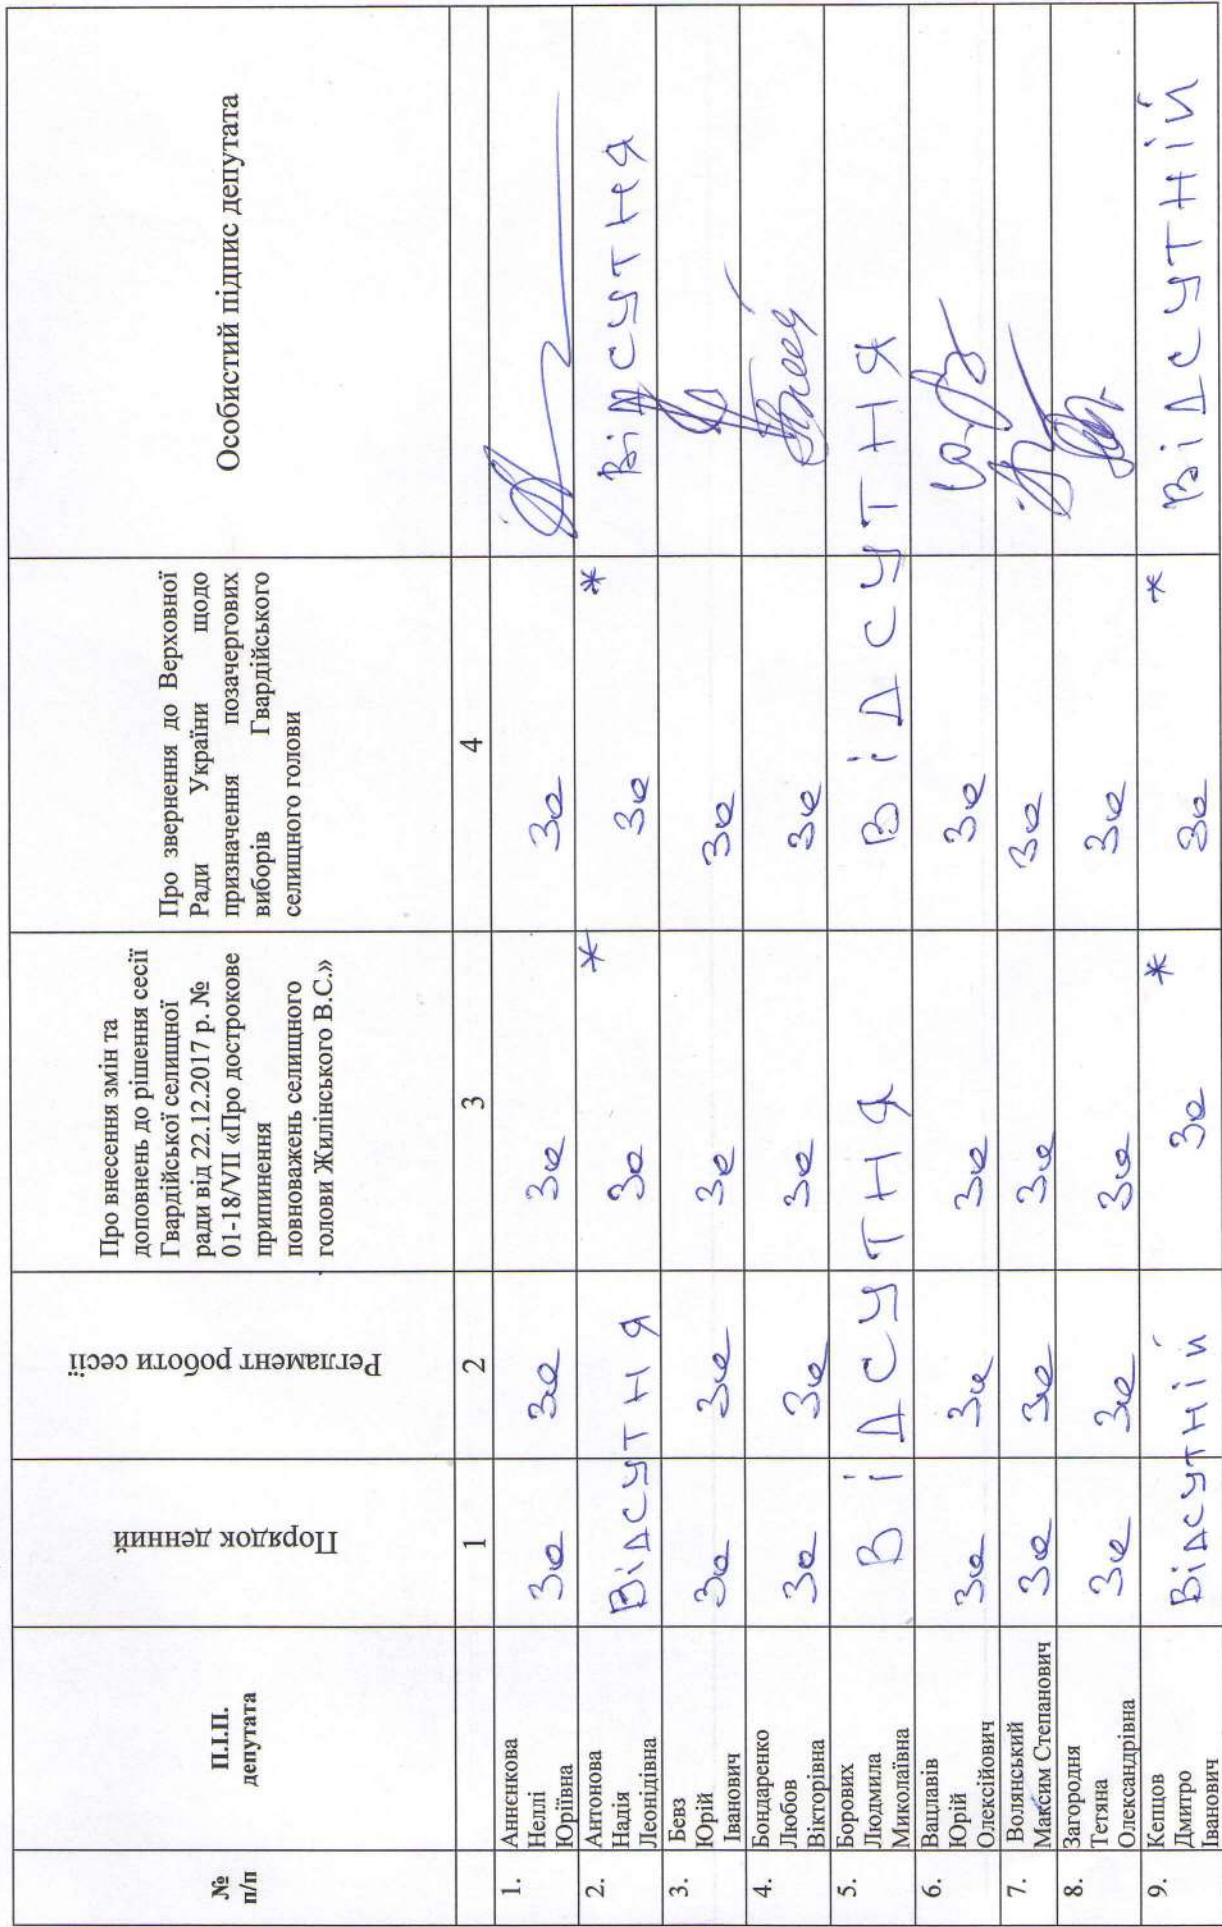 №
п/п
П.І.П.
депутата
Порядок денний
Регламент роботи сесії
Про внесення змін та
доповнень до рішення сесії
Гвардійської селищної
ради від 22.12.2017 р. №
01-18/VII «Про дострокове
припинення
повноважень селищного
голови Жилінського В.С.»
Про звернення до Верховної
Ради України щодо
призначення позачергових
виборів Гвардійського
селищного голови
Особистий підпис депутата
1 2 3 4
1. Аннєнкова
Неллі
Юріївна
За За За За
2. Антонова
Надія
Леонідівна
Відсутня За * За * Відсутня
3. Бевз
Юрій
Іванович
За За За За
4. Бондаренко
Любов
Вікторівна
За За За За
5. Борових
Людмила
Миколаївна
Відсутня Відсутня
6. Вацлавів
Юрій
Олексійович
За За За За
7. Волянський
Максим Степанович
За За За За
8. Загородня
Тетяна
Олександрівна
За За За За
9. Кепцов
Дмитро
Іванович
Відсутній За * За * Відсутній